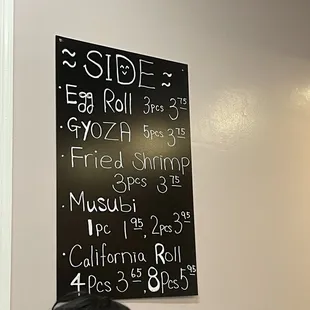 ≈ SIDE ≈
· Egg Roll 3pcs 3.75
· GYOZA 5pcs 3.75
· Fried Shrimp
3pcs 3.75
· Musubi
1pc 1.95, 2pcs 3.95
· California Roll
4Pcs 3.65, 8Pcs 5.95